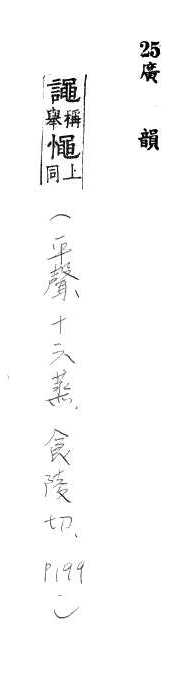 25廣 韻
譝稱舉憴上同(平聲、十六蒸、食陵切、P199)